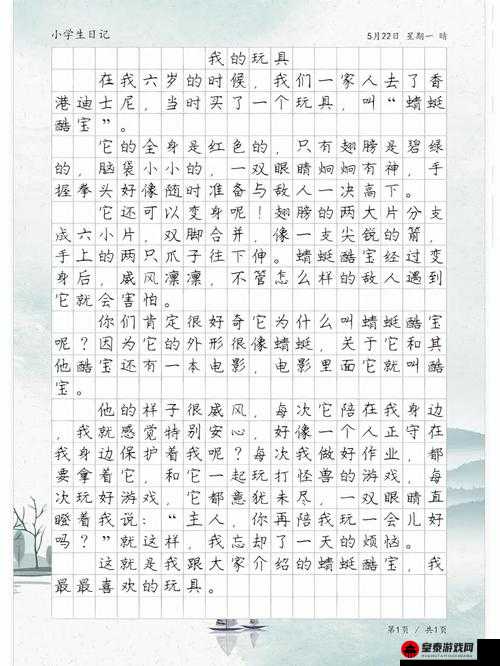 小学生日记
5月22日 星期一 晴
我的玩具
在我六岁的时候，我们一家人去了香
港迪士尼，当时买了一个玩具，叫“蜻蜓
酷宝”。
它的全身是红色的，只有翅膀是碧绿
的，脑袋小小的，一双眼睛炯炯有神，手
握拳头好像随时准备与敌人一决高下。
它还可以变身呢！翅膀的两大片分支
成六小片，双脚合并，像一支尖锐的箭，
手上的两只爪子往下伸。蜻蜓酷宝经过变
身后，威风凛凛，不管怎么样的敌人遇到
它就会害怕。
你们肯定很好奇它为什么叫蜻蜓酷宝
呢？因为它的外形很像蜻蜓，关于它和其
他酷宝还有一本电影，电影里面它就叫酷
宝。
他的样子很威风，每次它陪在我身边
，我就感觉特别安心，好像一个人正守在
我身边保护着我呢？每次我做好作业，都
要拿着它，和它一起玩打怪兽的游戏，每
次玩好游戏，它都意犹未尽，一双眼睛直
瞪着我说：“主人，你再陪我玩一会儿好
吗？”就这样，我忘却了一天的烦恼。
这就是我跟大家介绍的蜻蜓酷宝，我
最最喜欢的玩具。
第1页 / 共1页
皇泰游戏网